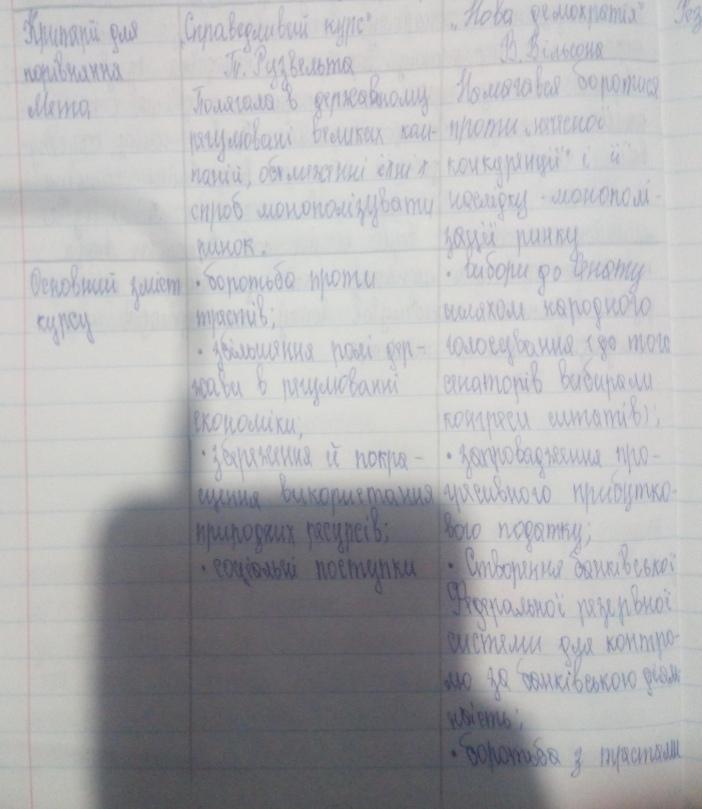 Критерії для
порівняння
„Справедливий курс"
Т. Рузвельта
„Нова демократія"
В. Вільсона
Роз
Мета
Полягала в державному
регулювані великих ком-
паній, обмеженні їхніх
спроб монополізувати
ринок.
Намагався боротися
проти „нечесної
конкуренції" і її
наслідку - монополі-
зації ринку
Основний зміст
курсу
• боротьба проти
трестів;
• збільшення ролі дер-
жави в регулюванні
економіки;
• збереження й покра-
щення використання
природних ресурсів;
• соціальні поступки
• вибори до Сенату
шляхом народного
голосування (до того
сенаторів вибирали
конгреси штатів);
• запровадження про-
гресивного прибутко-
вого податку;
• Створення банківської
Федеральної резервної
системи для контро-
лю за банківською діяль
ністю;
• боротьба з трестами